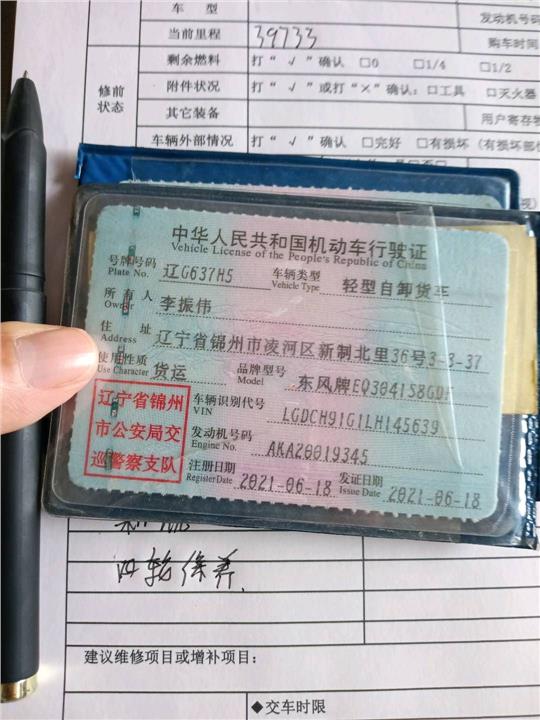 车 型
发动机号码
当前里程 39733
购车时间
修前状态
剩余燃料 打“√”确认 □0 □1/4 □1/2
附件状况 打“√”或打“×”确认：□工具 □灭火器
其它装备
用户寄存物
车辆外部情况 打“√”确认 □完好 □有损坏（有损坏部
中华人民共和国机动车行驶证
Vehicle License of the People's Republic of China
号牌号码 辽G637H5 车辆类型 轻型自卸货车
Plate No. Vehicle Type
所有人 李振伟
Owner
住址 辽宁省锦州市凌河区新制北里36号3-3-37
Address
使用性质 货运 品牌型号
Use Character Model 东风牌
辽宁省锦州市公安局交巡警察支队
车辆识别代号 LGDCH91G1LH145639
VIN
发动机号码 AKA20019345
Engine No.
注册日期 2021-06-18 发证日期 2021-06-18
Register Date Issue Date
四轮保养
建议维修项目或增补项目：
◆交车时限